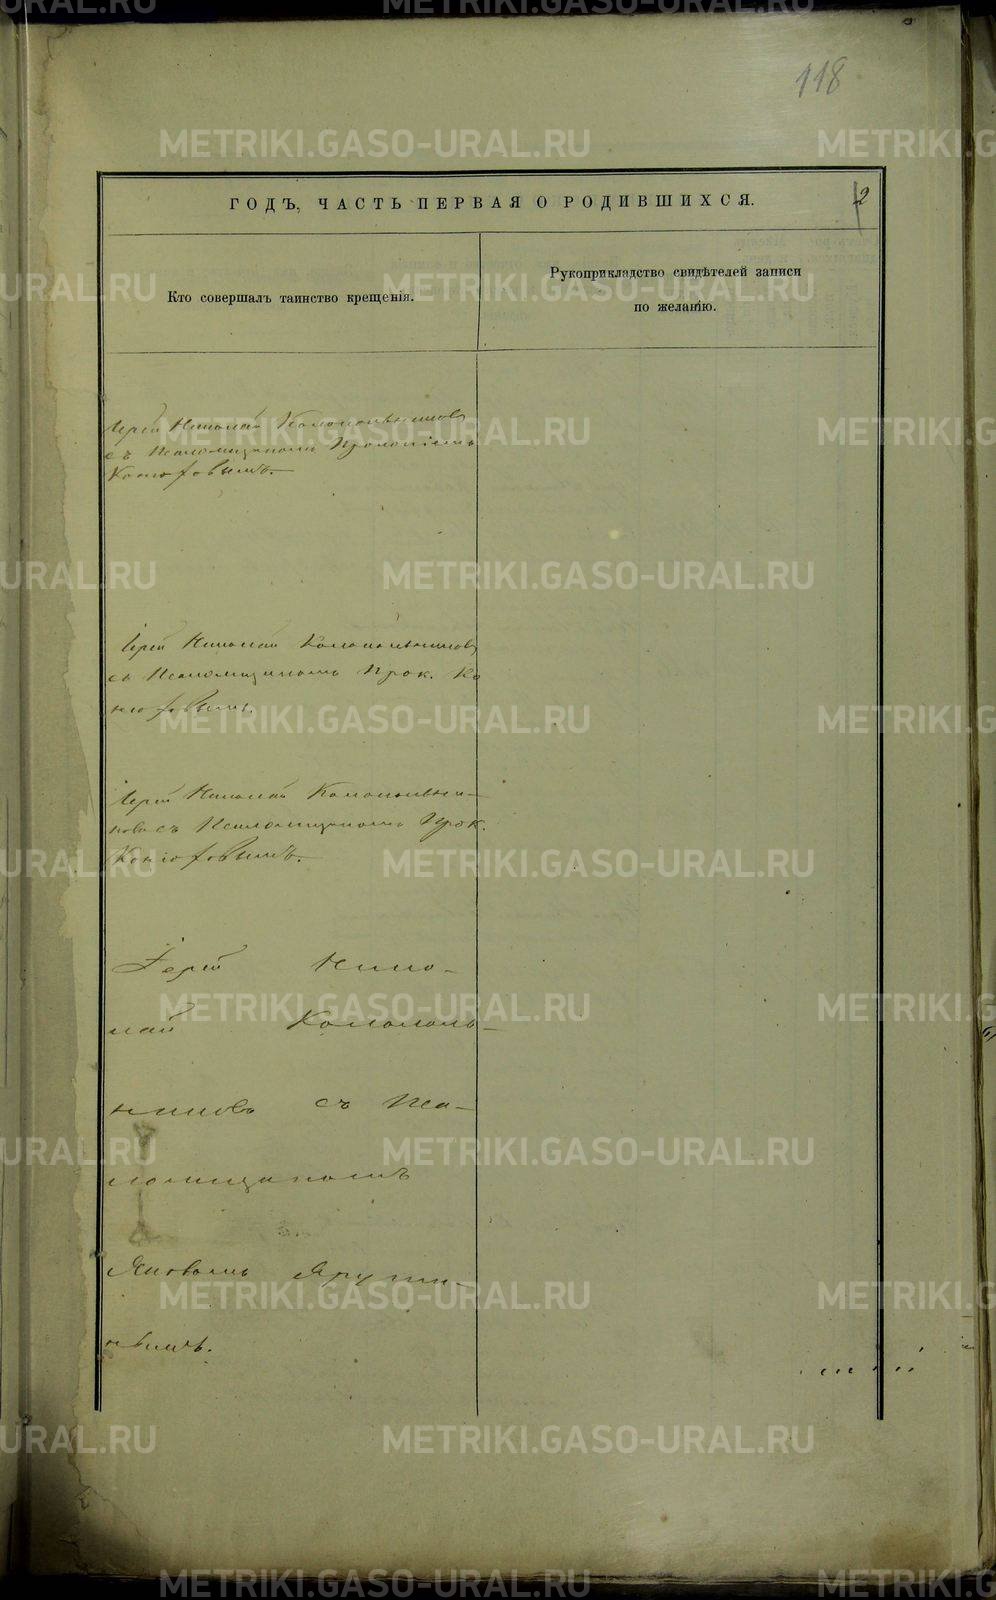 118
ГОДЪ, ЧАСТЬ ПЕРВАЯ О РОДИВШИХСЯ.
2
Кто совершалъ таинство крещенія.
Рукоприкладство свидѣтелей записи
по желанію.
Іерей Николай Колокольниковъ
съ Псаломщикомъ Прокопіемъ
Конюховымъ.
Іерей Николай Колокольниковъ
съ Псаломщикомъ Прок. Ко
нюховымъ.
Іерей Николай Колокольни-
ковъ съ Псаломщикомъ Прок.
Конюховымъ.
Іерей Нико-
лай Колоколь-
никовъ съ Пса-
ломщикомъ
Яковомъ
нымъ.
METRIKI.GASO-URAL.RU